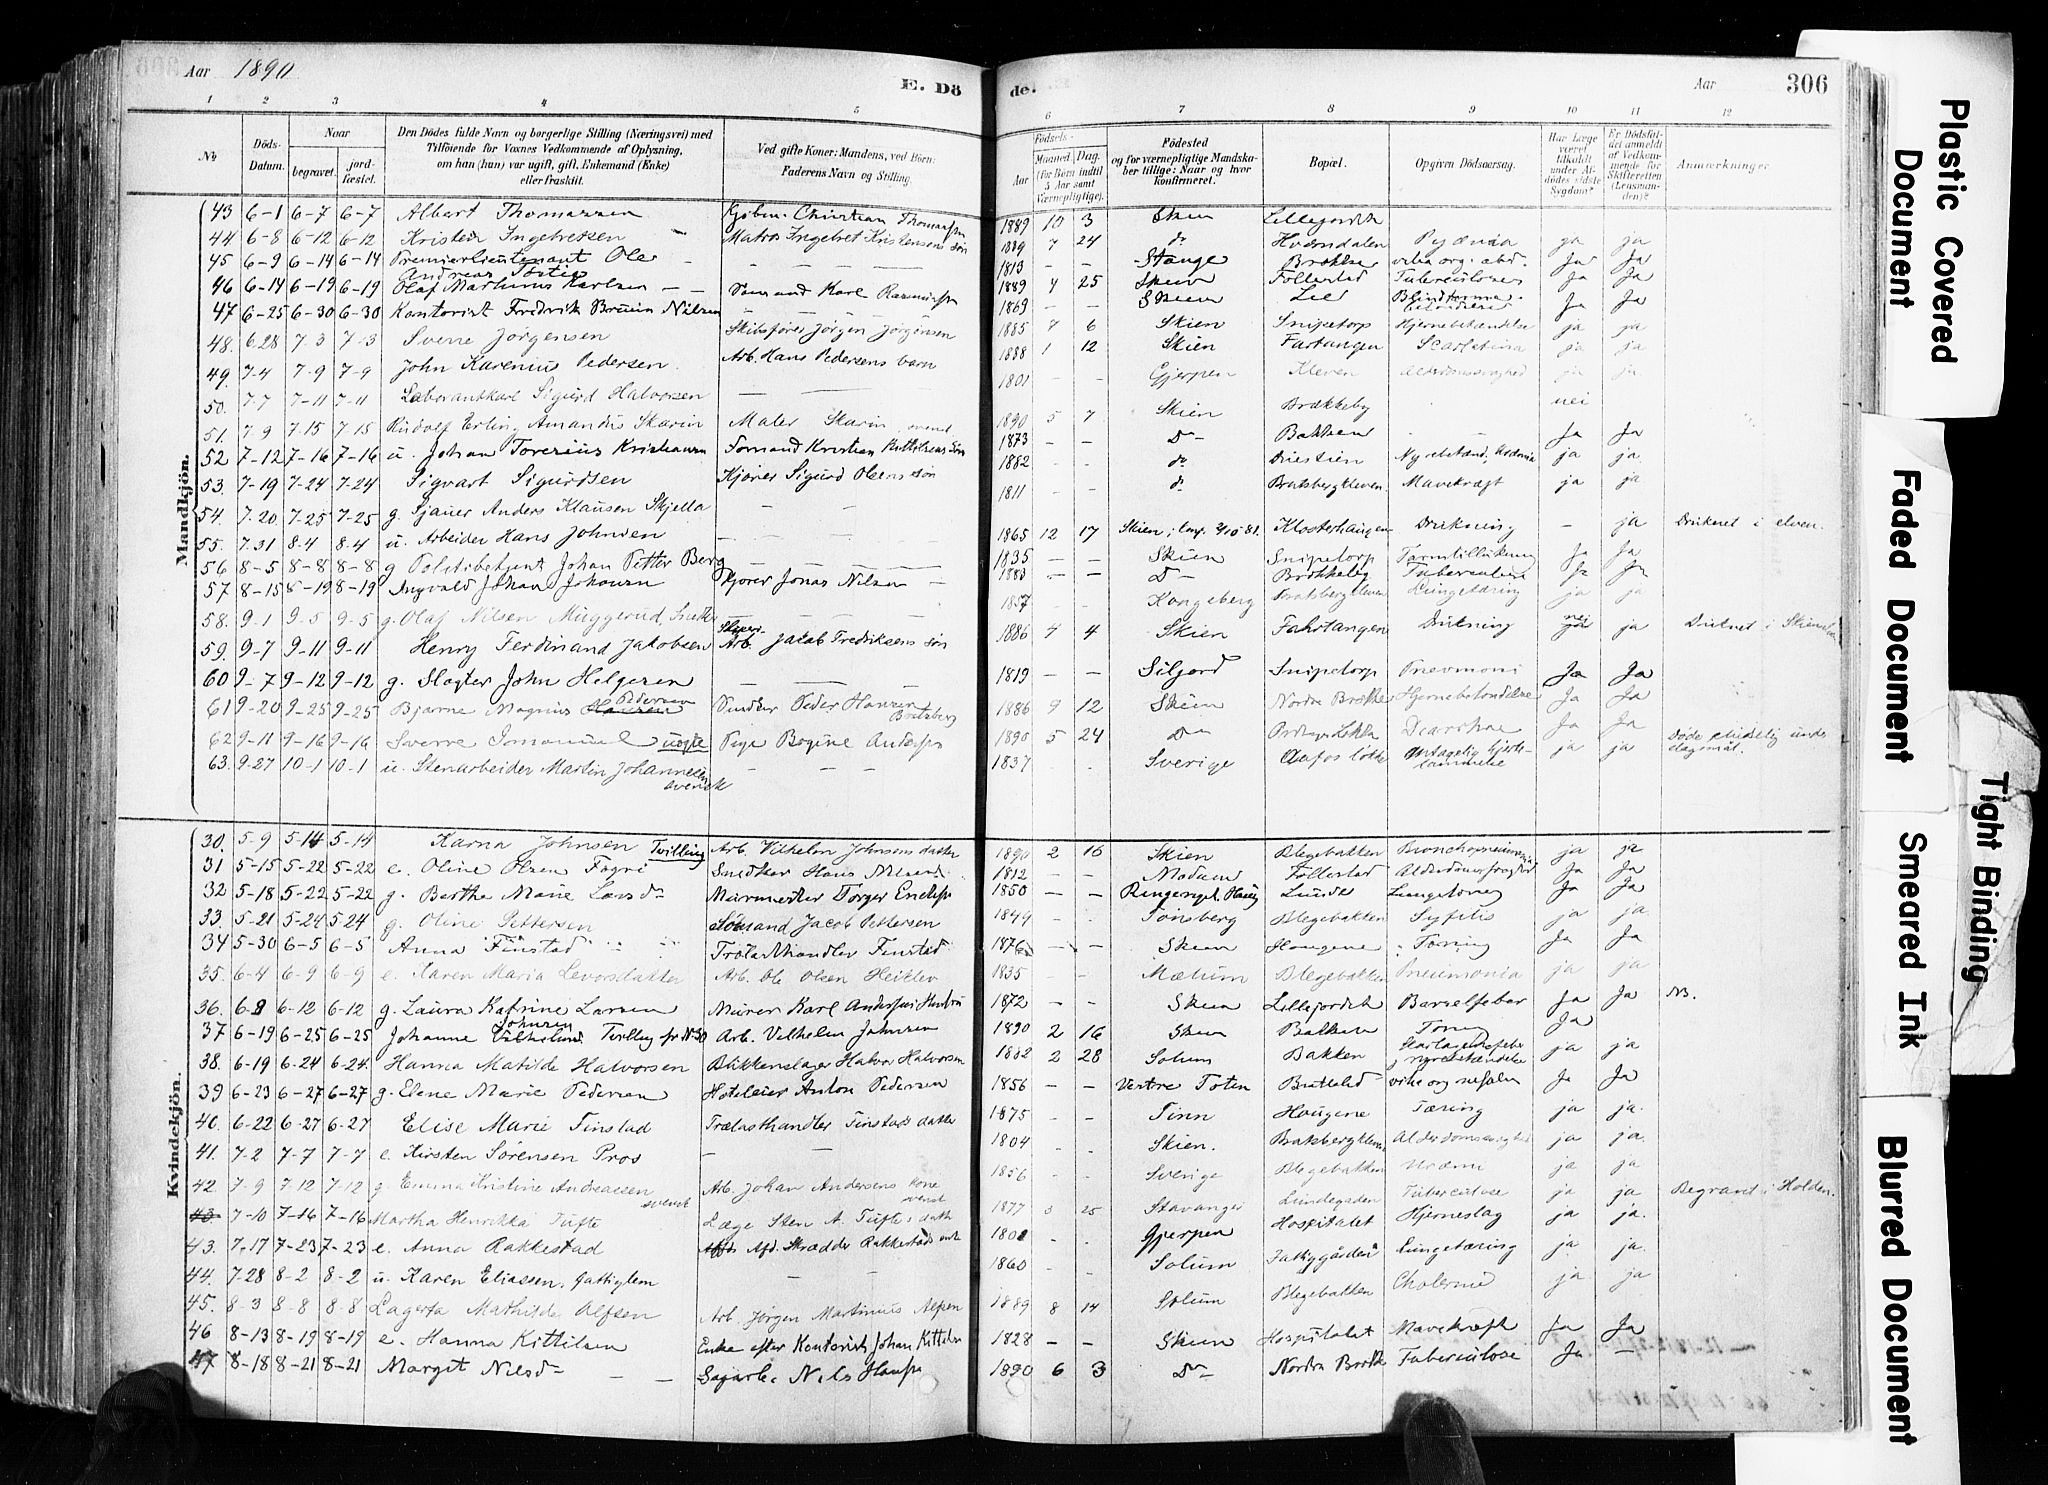 Aar 1890
E. Dö
de.
Aar
306
1 2 3 4 5 6 7 8 9 10 11 12
No
Döds-Datum.
Naar
begravet.
jord-fæstet.
Den Dödes fulde Navn og borgerlige Stilling (Næringsvei) med
Tilföiende for Voxnes Vedkommende af Oplysning,
om han (hun) var ugift, gift, Enkemand (Enke)
eller fraskilt.
Ved gifte Koner: Mandens, ved Börn:
Faderens Navn og Stilling.
Födsels-
Aar
Maaned. Dag.
(for Börn indtil
5 Aar samt
Værnepligtige).
Födested
og for værnepligtige Mandska-
ber tillige: Naar og hvor
konfirmeret.
Bopæl.
Opgiven Dödsaarsag.
Har Læge
været
tilkaldt
under Af-
dödes sidste
Sygdom?
Er Dödsfal-
det anmeldt
af Vedkom-
mende for
Skifteretten
(Lensman-
den)?
Anmærkninger.
Mandkjön.
43 6-1 6-7 6-7 Albert Thomassen Kjøbm. Christian Thomassen 1889 10 3 Skien Lillejordet
44 6-8 6-12 6-12 Kristen Ingebretsen Matros Ingebret Kristensens søn 1889 7 24 do Hværndalen ja ja
45 6-9 6-14 6-14 Premierlieutenant Ole Andreas 1813 - - Stange Brække Ja Ja
46 6-14 6-19 6-19 Olaf Martinus Karlsen Sømand Karl 1889 4 25 Skien Follestad Tuberculose Ja Ja
47 6-25 6-30 6-30 Kontorist Fredrik Bruun Nilsen 1869 - - Skien Lie Ja Ja
48. 6.28 7-3 7-3 Svene Jörgensen Skibsförer Jörgen Jörgensen 1885 7 6 Skien Snipetorp Hjernebetændelse ja ja
49. 7-4 7-9 7-9 John Karenius Pedersen Arb. Hans Pedersens barn 1888 1 12 Skien Fartangen Scarlatina ja ja
50. 7-7 7-11 7-11 Laborantkarl Sigurd Halvorsen 1801 - - Gjerpen Kleven Alderdomssvaghed ja ja
51. 7-9 7-15 7-15 Rudolf Erling Amandus Skarin Maler Skarin, svensk 1890 5 7 Skien Brækkeby nei
52 7-12 7-16 7-16 u. Johan Torerius Kristiansen Sømand Kristian søn 1873 - - Do Bakken Ja Ja
53. 7-19 7-24 7-24 Sigvart Sigurdsen Kjører Sigurd Olsens søn 1882 do ja ja
54. 7-20 7-25 7-25 g. Sjauer Anders Klausen Skjella 1811 - - do Bratsbergkleven Mavekræft ja ja
55. 7.31 8-4 8-4 u. Arbeider Hans Johnsen 1865 12 17 Skien; Klosterhaugen Drukning - ja Druknet i elven.
56 8-5 8-8 8-8 g Politibetjent Johan Petter Berg 1835 - - Skien Snipetorp Ja Ja
57 8-15 8-19 8-19 Ingvald Johan Johansen Kjører Jonas Nilsen 1883 - - Do Brækkeby Tuberculose Ja Ja
58. 9-1 9-5 9-5 g. Olaf Nilsen Muggerud, Snekker 1857 Kongsberg Bratsbergkleven Lungetæring ja ja
59. 9-7 9-11 9-11 Henry Ferdinand Jakobsen Arb. Jacob Fredriksens søn 1886 4 4 Skien Fahrtangen Drukning nei ja Druknet i Skienselven
60 9-7 9-12 9-12 g. Slagter John Helgesen 1819 - - Siljord Snipetorp Pnevmoni Ja Ja
61 9-20 9-25 9-25 Bjarne Magnus Hansen Pedersen Snedker Peder Hansen Bratsberg 1886 9 12 Skien Nordre Brække Hjernebetændelse Ja Ja
62 9-11 9-16 9-16 Sverre Imanuel uægte Pige Regine Andersen 1890 5 24 Do Diarrhae Ja Ja
63. 9-27 10-1 10-1 u. Stenarbeider Martin Johannesen svensk 1837 Sverige Antagelig hjerte-lammelse ja ja Døde pludselig under dagsmål.
Kvindekjön.
30. 5-9 5-14 5-14 Karna Johnsen Tvilling Arb. Vilhelm Johnsens datter 1890 2 16 Skien Blegebakken Bronchopneumonie ja ja
31 5-15 5-22 5-22 e. Oline Olsen Snedker Hans 1812 - - Modum Follestad Alderdomssvaghed Ja Ja
32 5-18 5-22 5-22 g. Berthe Marie Larsd. Murmester Torger 1850 - - Lunde Lungetæring Ja Ja
33. 5-21 5-24 5-24 g. Oline Pettersen Sømand Jacob Pettersen 1849 Tönsberg Blegebakken Syfilis ja ja
34 5-30 6-5 6-5 Anna Finstad Trælasthandler Finstad 1876 - - Skien Hougene Tæring Ja Ja
35. 6-4 6-9 6-9 e. Karen Maria Levorsdatter Arb. Ole Olsen 1835 Mælum Blegebakken Pneumonia ja ja
36. 6-8 6-12 6-12 g. Laura Katrine Larsen Murer Karl Andersens Hustru 1872 - - Skien Lillejordet Barselfeber Ja Ja NB.
37 6-19 6-25 6-25 Johanne Johnsen Tvilling fr No 30 Arb. Vilhelm Johnsen 1890 2 16 Skien Bakken Tæring Ja
38. 6-19 6-24 6-24. Hanna Matilde Halvorsen Blikkenslager Halvor Halvorsen 1882 2 28 Solum Bakken Skarlagensfeber nyrebetændelse ja ja
39 6-23 6-27 6-27 g. Elene Marie Pedersen Hoteleier Anton Pedersen 1856 - - Vestre Toten Ja Ja
40. 6-22 6-27 6-27 Elise Marie Finstad Trælasthandler Finstads datter 1875 - - Tinn Hougene Tæring ja ja.
41. 7-2 7-7 7-7 e. Kirsten Sørensen Pros 1804 - - Skien. Bratsbergkleven Alderdomssvaghed ja ja.
42. 7-9 7-12 7-12 g. Emma Kristine Andreassen svensk Arb. Johan Andersens kone svensk 1856 Sverige Blegebakken Uræmi ja ja
43 7-10 7-16 7-16 Martha Henrikka Tufte Læge Sten A. Tuftes datt 1877 25 Stavanger Lundegaden Tuberculose ja ja Begravet i Holden.
43. 7-17 7-23 7-23 e. Anna Rakkestad Afd. Skrædder Rakkestads enk 1801 Gjerpen Hospitalet Hjerneslag ja ja.
44. 7-28 8-2 8-2 u. Karen Eliassen, Fattiglem 1860 Solum Fattiggården Lungetæring ja ja.
45. 8-3 8-8 8-8 Lagerta Mathilde Alfsen Arb. Jørgen Martinius 1889 8 14 Solum Blegebakken Cholerine ja ja
46 8-13 8-19 8-19 e. Hanna Kittilsen Enke efter Kontorist Johan Kittilsen 1828 - - Skien Hospitalet Mavekræft Ja Ja
47 8-18 8-21 8-21 Margit Nilsd. Sagarb. Nils 1890 6 3 Do Nordre Brække Tuberculose Ja -
Plastic Covered Document
Faded Document
Tight Binding
Smeared Ink
Blurred Document